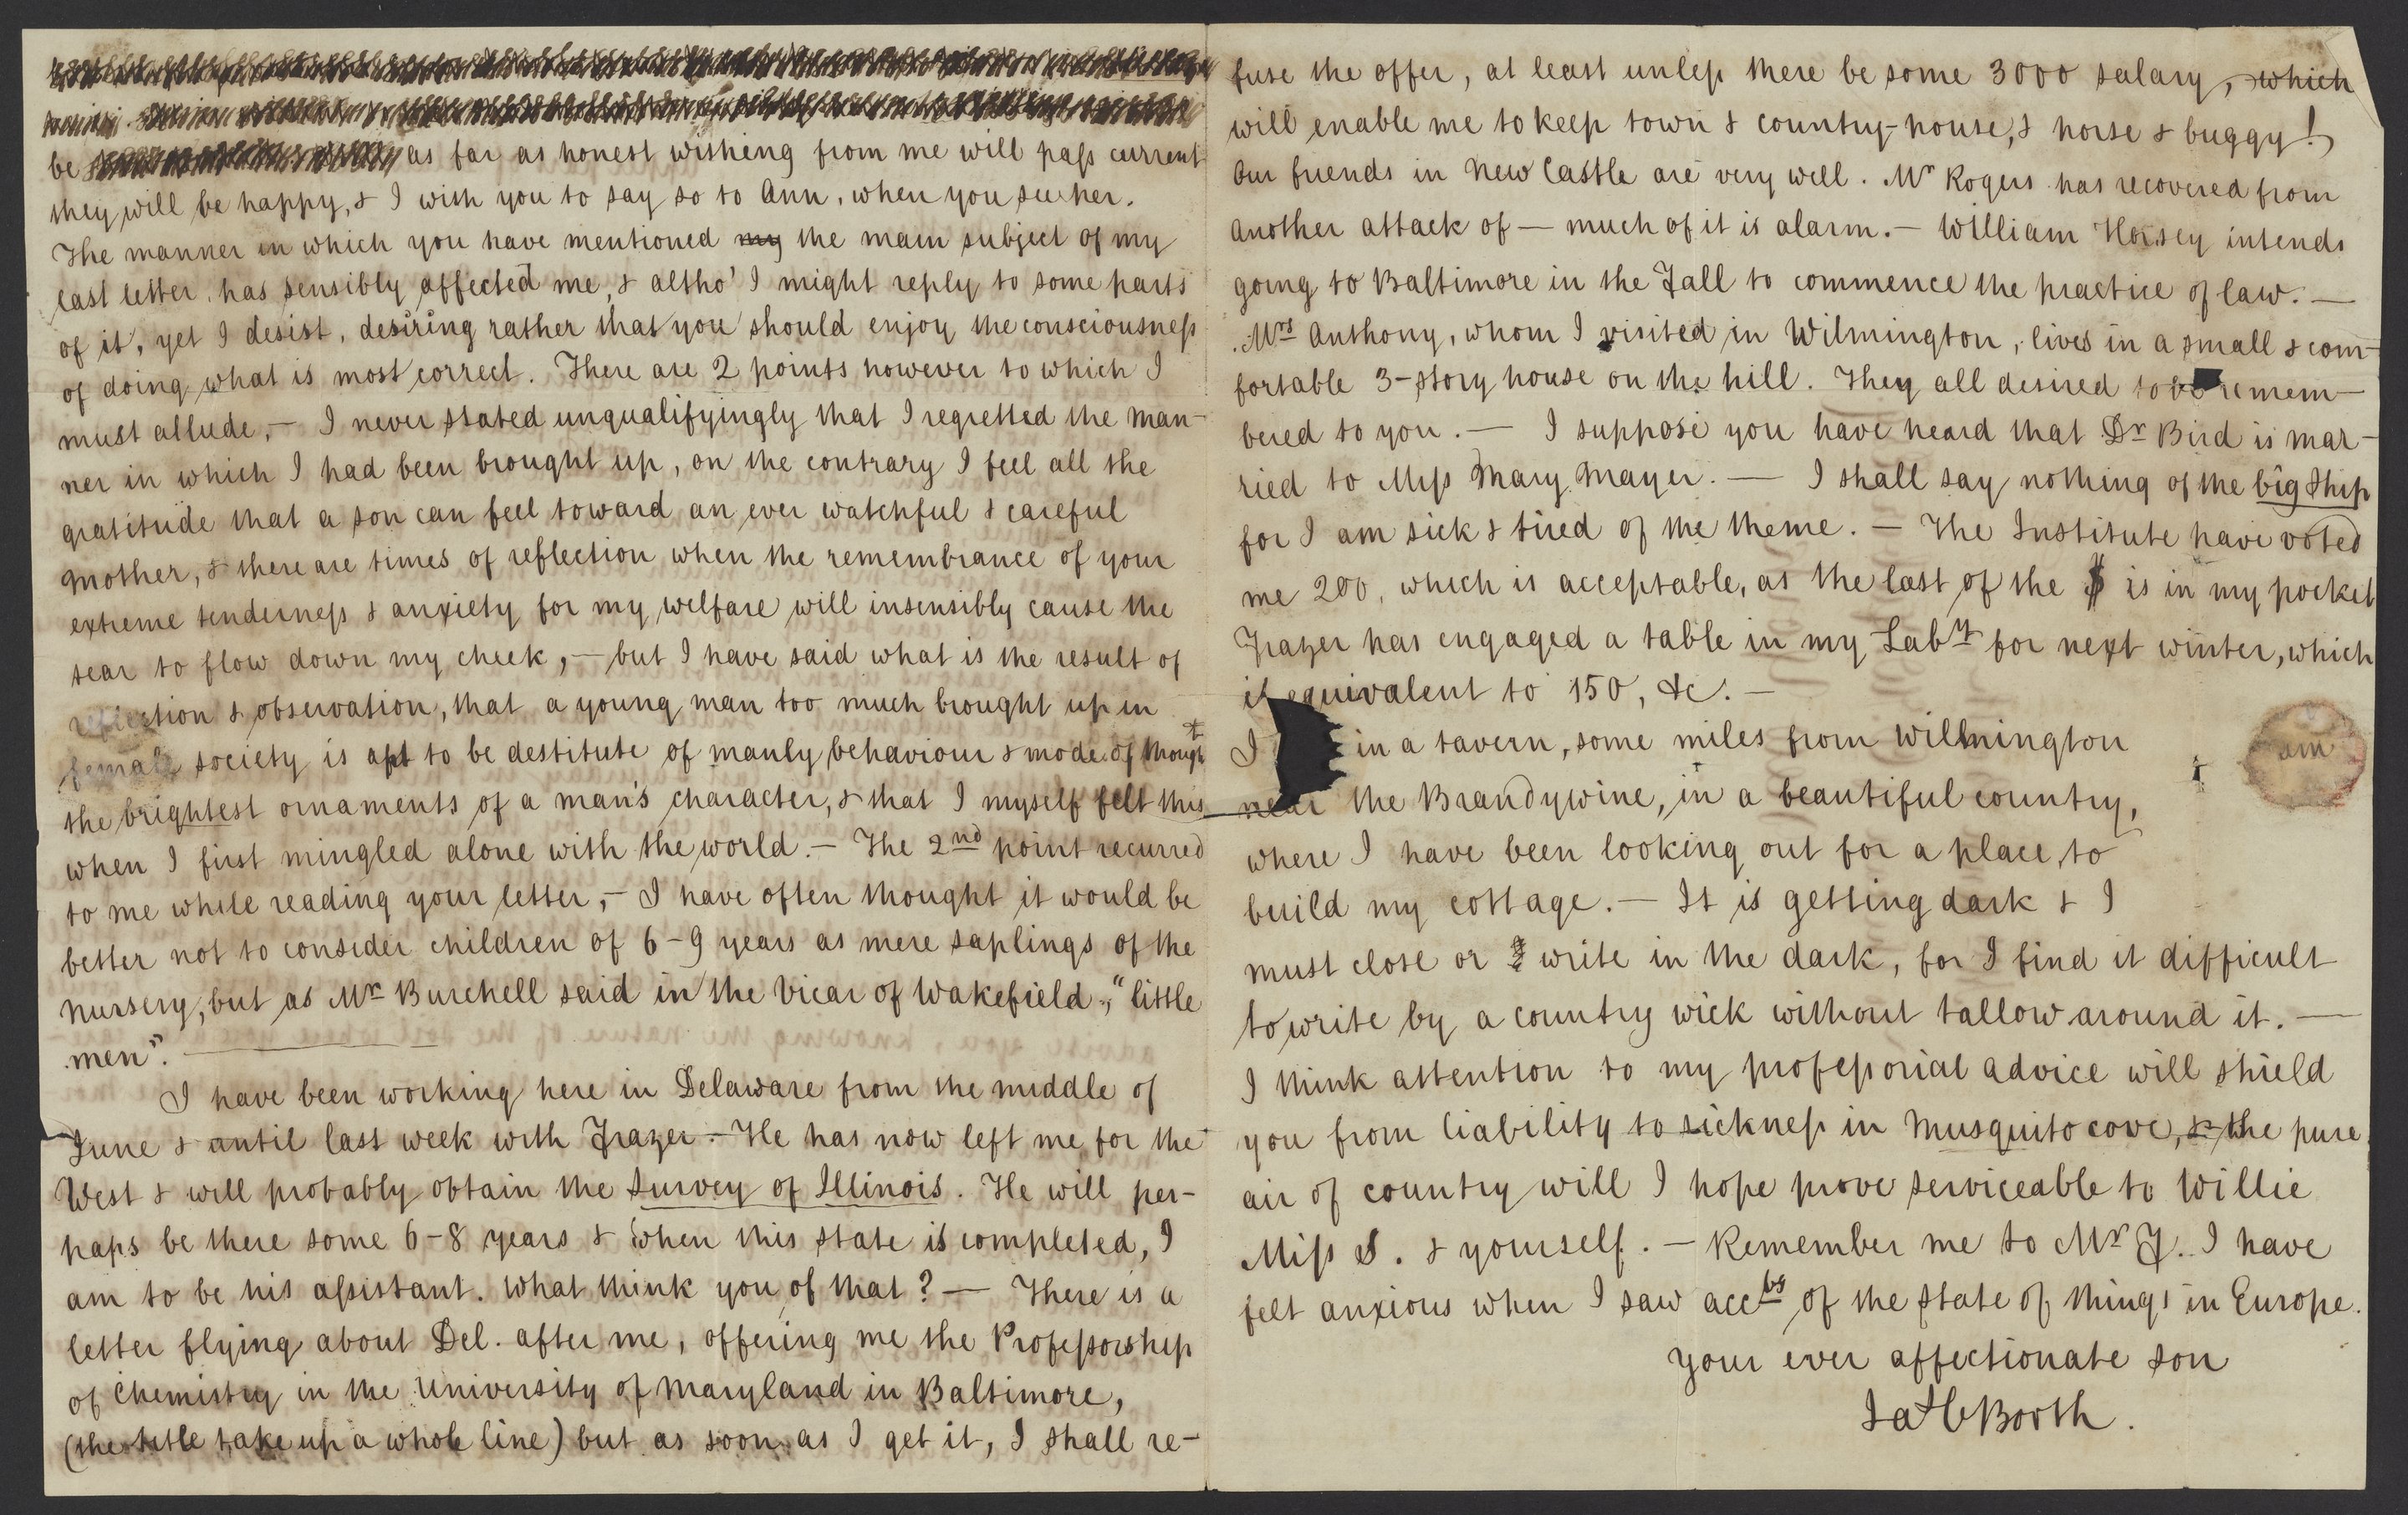 be as far as honest wishing from me will pass current
they will be happy, & I wish you to say so to Ann, when you see her.
The manner in which you have mentioned my the main subject of my
last letter, has sensibly affected me, & altho' I might reply to some parts
of it, yet I desist, desiring rather that you should enjoy the consciousness
of doing what is most correct. There are 2 points however to which I
must allude, — I never stated unqualifyingly that I regretted the man-
ner in which I had been brought up, on the contrary I feel all the
gratitude that a son can feel toward an ever watchful & careful
mother, & there are times of reflection when the remembrance of your
extreme tenderness & anxiety for my welfare will insensibly cause the
tear to flow down my cheek, — but I have said what is the result of
reflection & observation, that a young man too much brought up in
female society is apt to be destitute of manly behaviour & mode of thought
the brightest ornaments of a man's character, & that I myself felt this
when I first mingled alone with the world. — The 2nd point recurred
to me while reading your letter, — I have often thought it would be
better not to consider children of 6-9 years as mere saplings of the
nursery, but as Mr Burchell said in the Vicar of Wakefield, "little
men". —
I have been working here in Delaware from the middle of
June & until last week with Frazer. — He has now left me for the
West & will probably obtain the Survey of Illinois. He will per-
haps be there some 6-8 years & when this state is completed, I
am to be his assistant. What think you of that? — There is a
letter flying about Del. after me, offering me the Professorship
of Chemistry in the University of Maryland in Baltimore,
(the title take up a whole line) but as soon as I get it, I shall re-
fuse the offer, at least unless there be some 3000 salary, which
will enable me to keep town & country-house, & horse & buggy!
Our friends in New Castle are very well. Mr Rogers has recovered from
another attack of — much of it is alarm. — William Horsey intends
going to Baltimore in the Fall to commence the practice of law. —
Mrs Anthony, whom I visited in Wilmington, lives in a small & com-
fortable 3-story house on the hill. They all desired to be remem-
bered to you. — I suppose you have heard that Dr Bird is mar-
ried to Miss Mary Mayer. — I shall say nothing of the big ship
for I am sick & tired of the theme. — The Institute have voted
me 200, which is acceptable, as the last of the $ is in my pocket
Frazer has engaged a table in my Laby for next winter, which
is equivalent to 150, &c. —
I in a tavern, some miles from Wilmington
am
near the Brandywine, in a beautiful country,
where I have been looking out for a place to
build my cottage. — It is getting dark & I
must close or write in the dark, for I find it difficult
to write by a country wick without tallow around it. —
I think attention to my professorial advice will shield
you from liability to sickness in Musquito cove, & the pure
air of country will I hope prove serviceable to Willie
Miss S. & yourself. — Remember me to Mr J. I have
felt anxious when I saw accts of the state of things in Europe.
Your ever affectionate son
Jas C Booth.